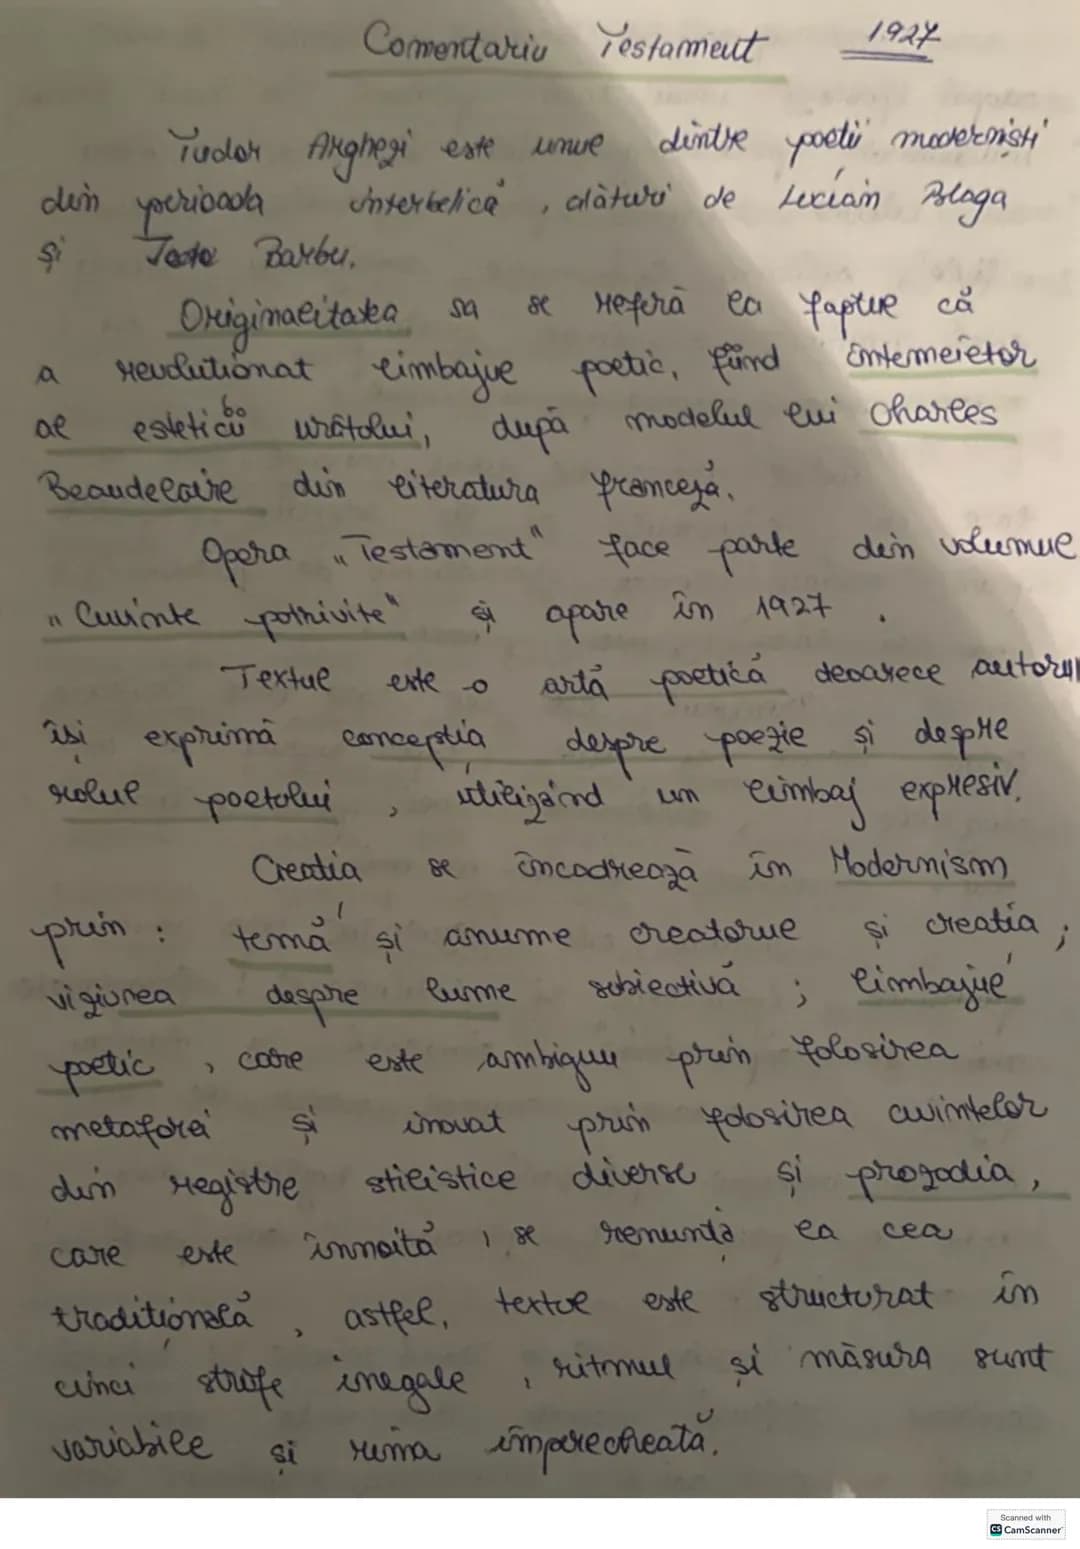 Comentariu Testament 1927
Tudor Arghezi este unul dintre poeții moderniști
din perioada interbelică, alături de Lucian Blaga
și Barbu.
Originalitatea sa se referă la faptul că
a revoluționat limbajul poetic, fiind întemeietor
al esteticii urâtului, după modelul lui Charles
Beaudelaire din literatura franceză.
Opera „Testament" face parte din volumul
„Cuvinte potrivite" și apare în 1927.
Textul este o artă poetică deoarece autorul
își exprimă concepția despre poezie și despre
rolul poetului, utilizând un limbaj expresiv.
Creația se încadrează în Modernism
prin: temă și anume creatorul și creația;
viziunea despre lume subiectivă; limbajul
poetic, care este ambiguu prin folosirea
metaforei și inovat prin folosirea cuvintelor
din registre stilistice diverse și prozodia,
care este înnoită, se renunță la cea
tradițională, astfel, textul este structurat în
cinci strofe inegale, ritmul și măsura sunt
variabile și rima împerecheată.
Scanned with
CS CamScanner